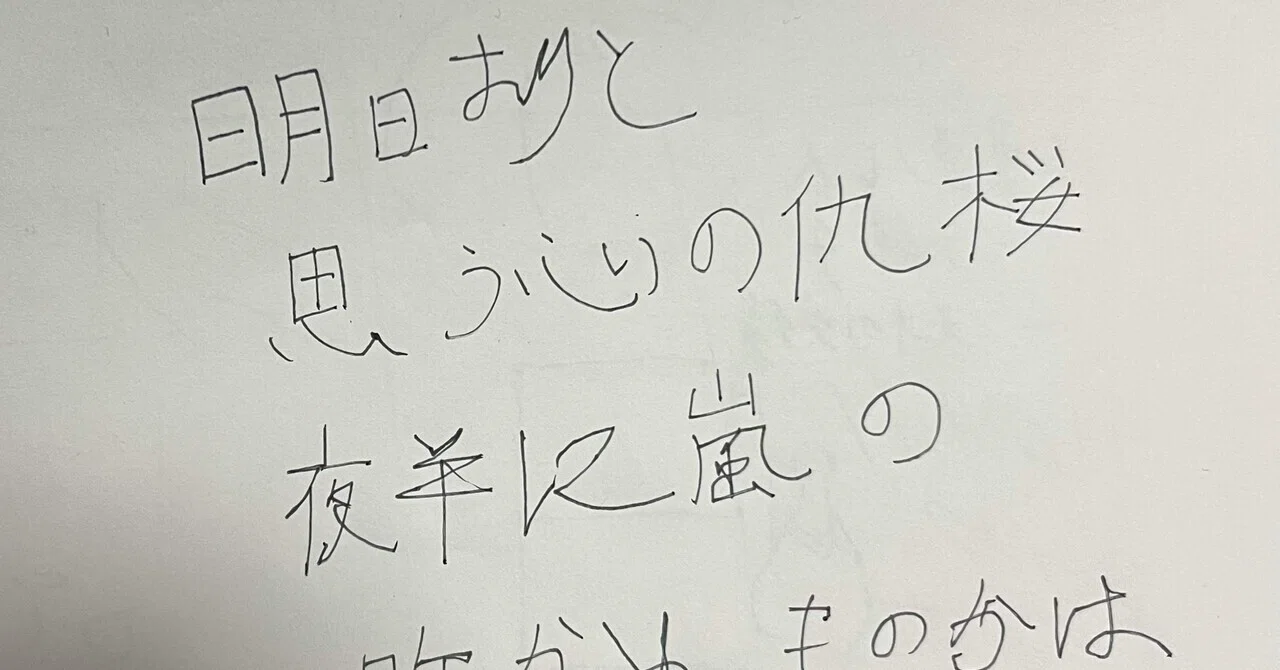 明日ありと
思う心の仇桜
夜半に嵐の
吹かぬものかは